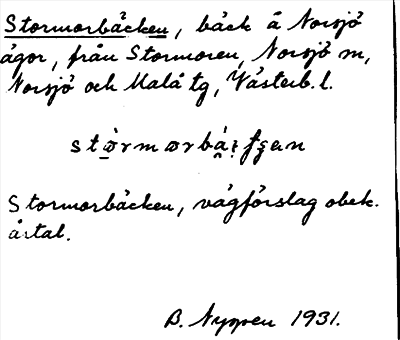 Stormorbäcken, bäck å Norsjö
ägor, från Stormoren, Norsjö m,
Norsjö och Malå tg, Västerb. l.
Stormorbäcken, vägförslag obek.
årtal.
B. Nyppen 1931.